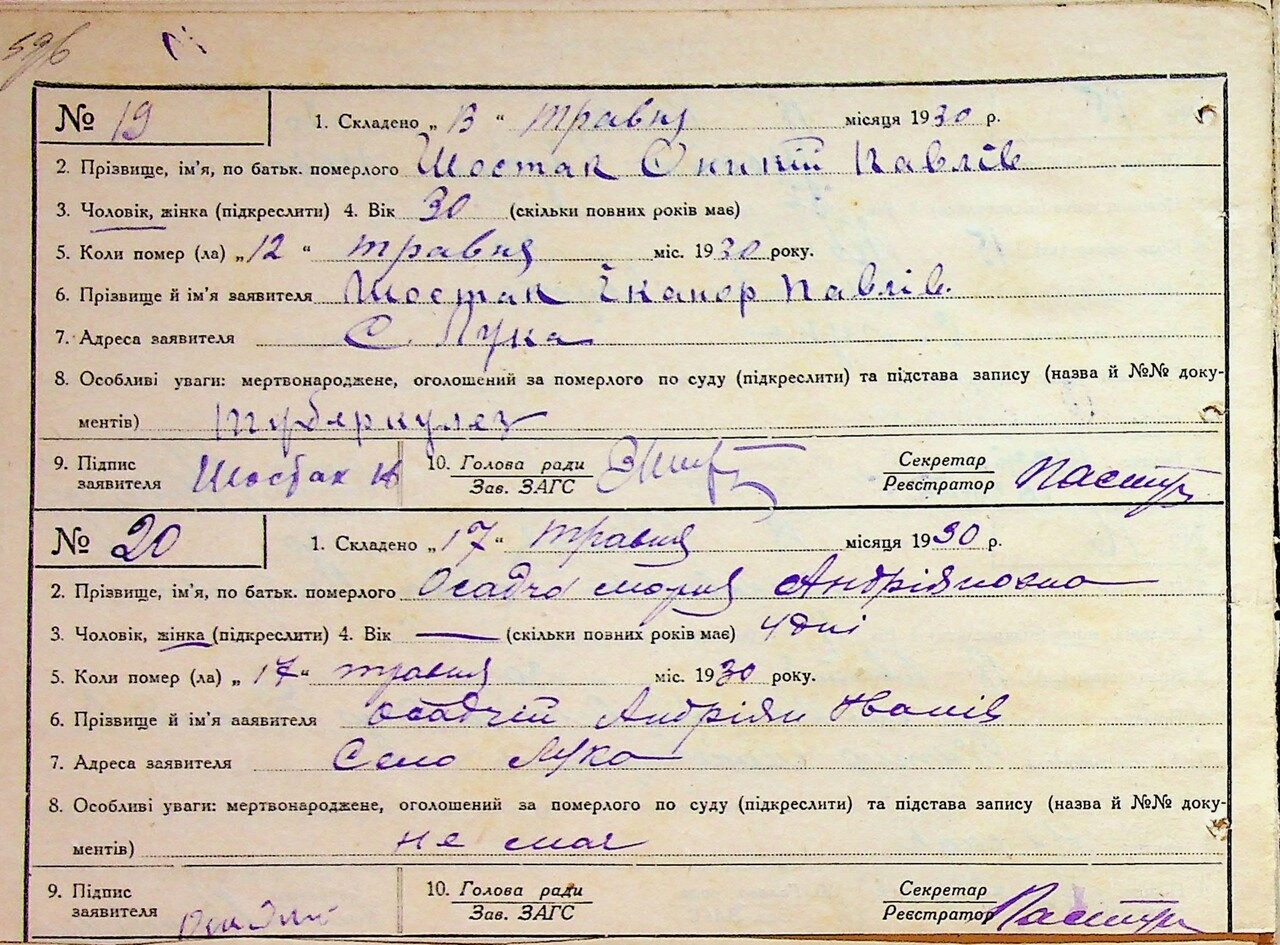 596
№ 19 1. Складено „ 13 “ травня місяця 1930 р.
2. Прізвище, ім'я, по батьк. померлого Шостак Оникій Павлів
3. Чоловік, жінка (підкреслити) 4. Вік 30 (скільки повних років має)
5. Коли помер (ла) „ 12 “ травня міс. 1930 року.
6. Прізвище й ім'я заявителя Шостак Іканор Павлів.
7. Адреса заявителя С. Лука
8. Особліві уваги: мертвонароджене, оголошений за померлого по суду (підкреслити) та підстава запису (назва й №№ доку-
ментів) туберкулез
9. Підпис заявителя Шостак 10. Голова ради Зав. ЗАГС Секретар Реєстратор Пастух
№ 20 1. Складено „ 17 “ травня місяця 1930 р.
2. Прізвище, ім'я, по батьк. померлого Осадча Мория Андріяновна
3. Чоловік, жінка (підкреслити) 4. Вік — (скільки повних років має) 4 дні
5. Коли помер (ла) „ 17 “ травня міс. 1930 року.
6. Прізвище й ім'я заявителя Осадчій Андріян Іванів
7. Адреса заявителя Село Лука
8. Особліві уваги: мертвонароджене, оголошений за померлого по суду (підкреслити) та підстава запису (назва й №№ доку-
ментів) не має
9. Підпис заявителя 10. Голова ради Зав. ЗАГС Секретар Реєстратор Пастух